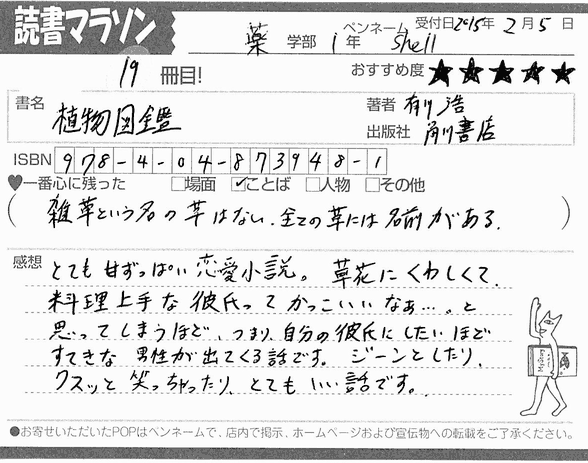 読書マラソン
薬 学部 1 年 ペンネーム shell 受付日 2015年 2月 5日
19 冊目! おすすめ度 ★★★★★
書名 植物図鑑
著者 有川 浩
出版社 角川書店
ISBN 978-4-04-873948-1
♥一番心に残った □場面 ☑ことば □人物 □その他
(雑草という名の草はない。全ての草には名前がある。)
感想 とても甘ずっぱい恋愛小説。草花にくわしくて、
料理上手な彼氏ってかっこいいなあ…。と
思ってしまうほど、つまり、自分の彼氏にしたいほど
すてきな男性が出てくる話です。ジーンとしたり、
クスッと笑っちゃったり、とてもいい話です。
●お寄せいただいたPOPはペンネームで、店内で掲示、ホームページおよび宣伝物への転載をご了承ください。